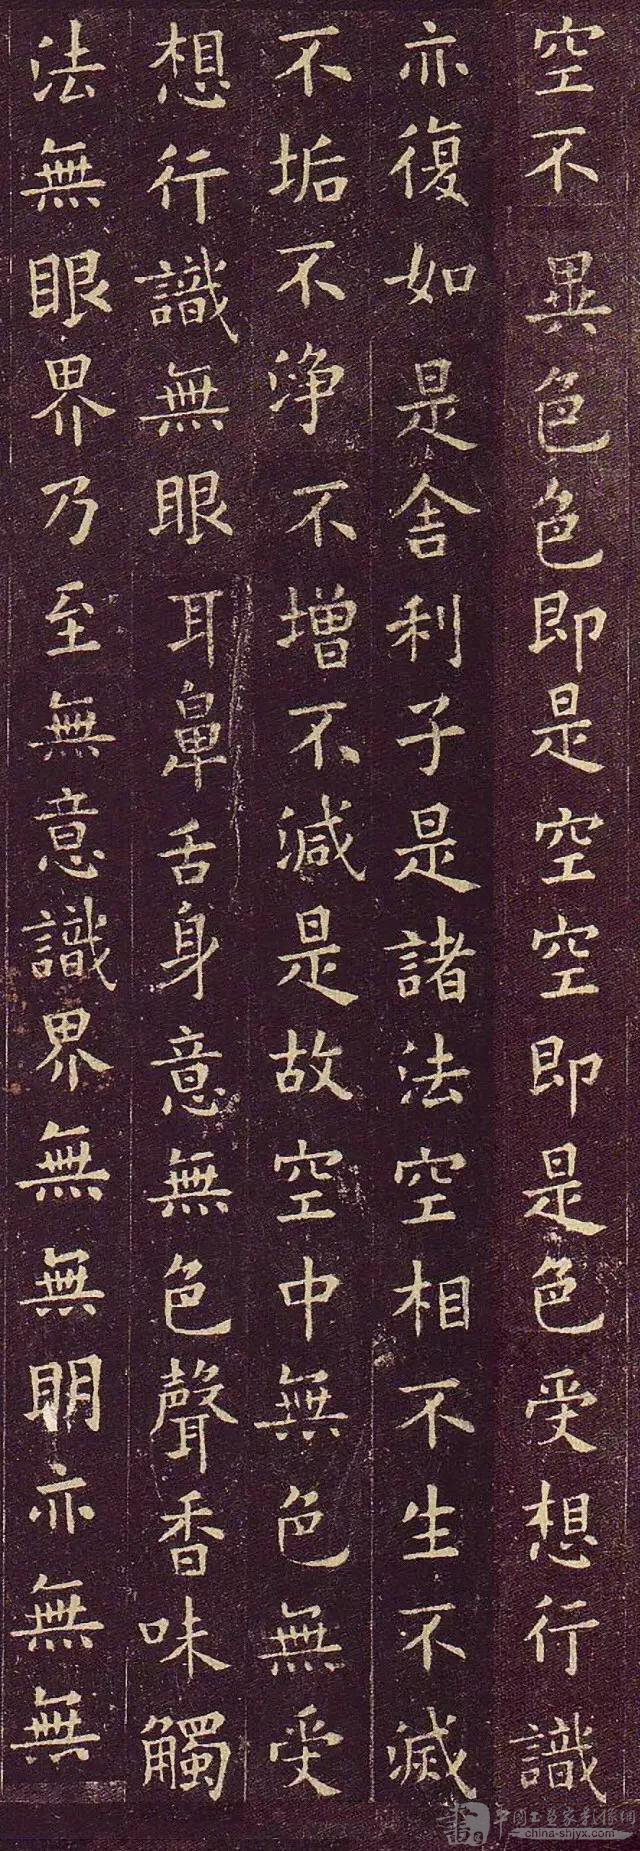 空不異色色即是空空即是色受想行識
亦復如是舍利子是諸法空相不生不滅
不垢不淨不增不減是故空中無色無受
想行識無眼耳鼻舌身意無色聲香味觸
法無眼界乃至無意識界無無明亦無無
中國工藝家影像網
china-shjyx.com